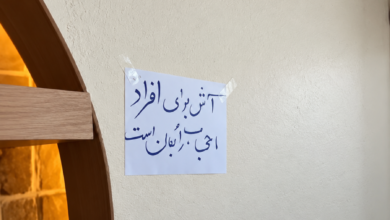 آش برای افراد
باحجاب رایگان است